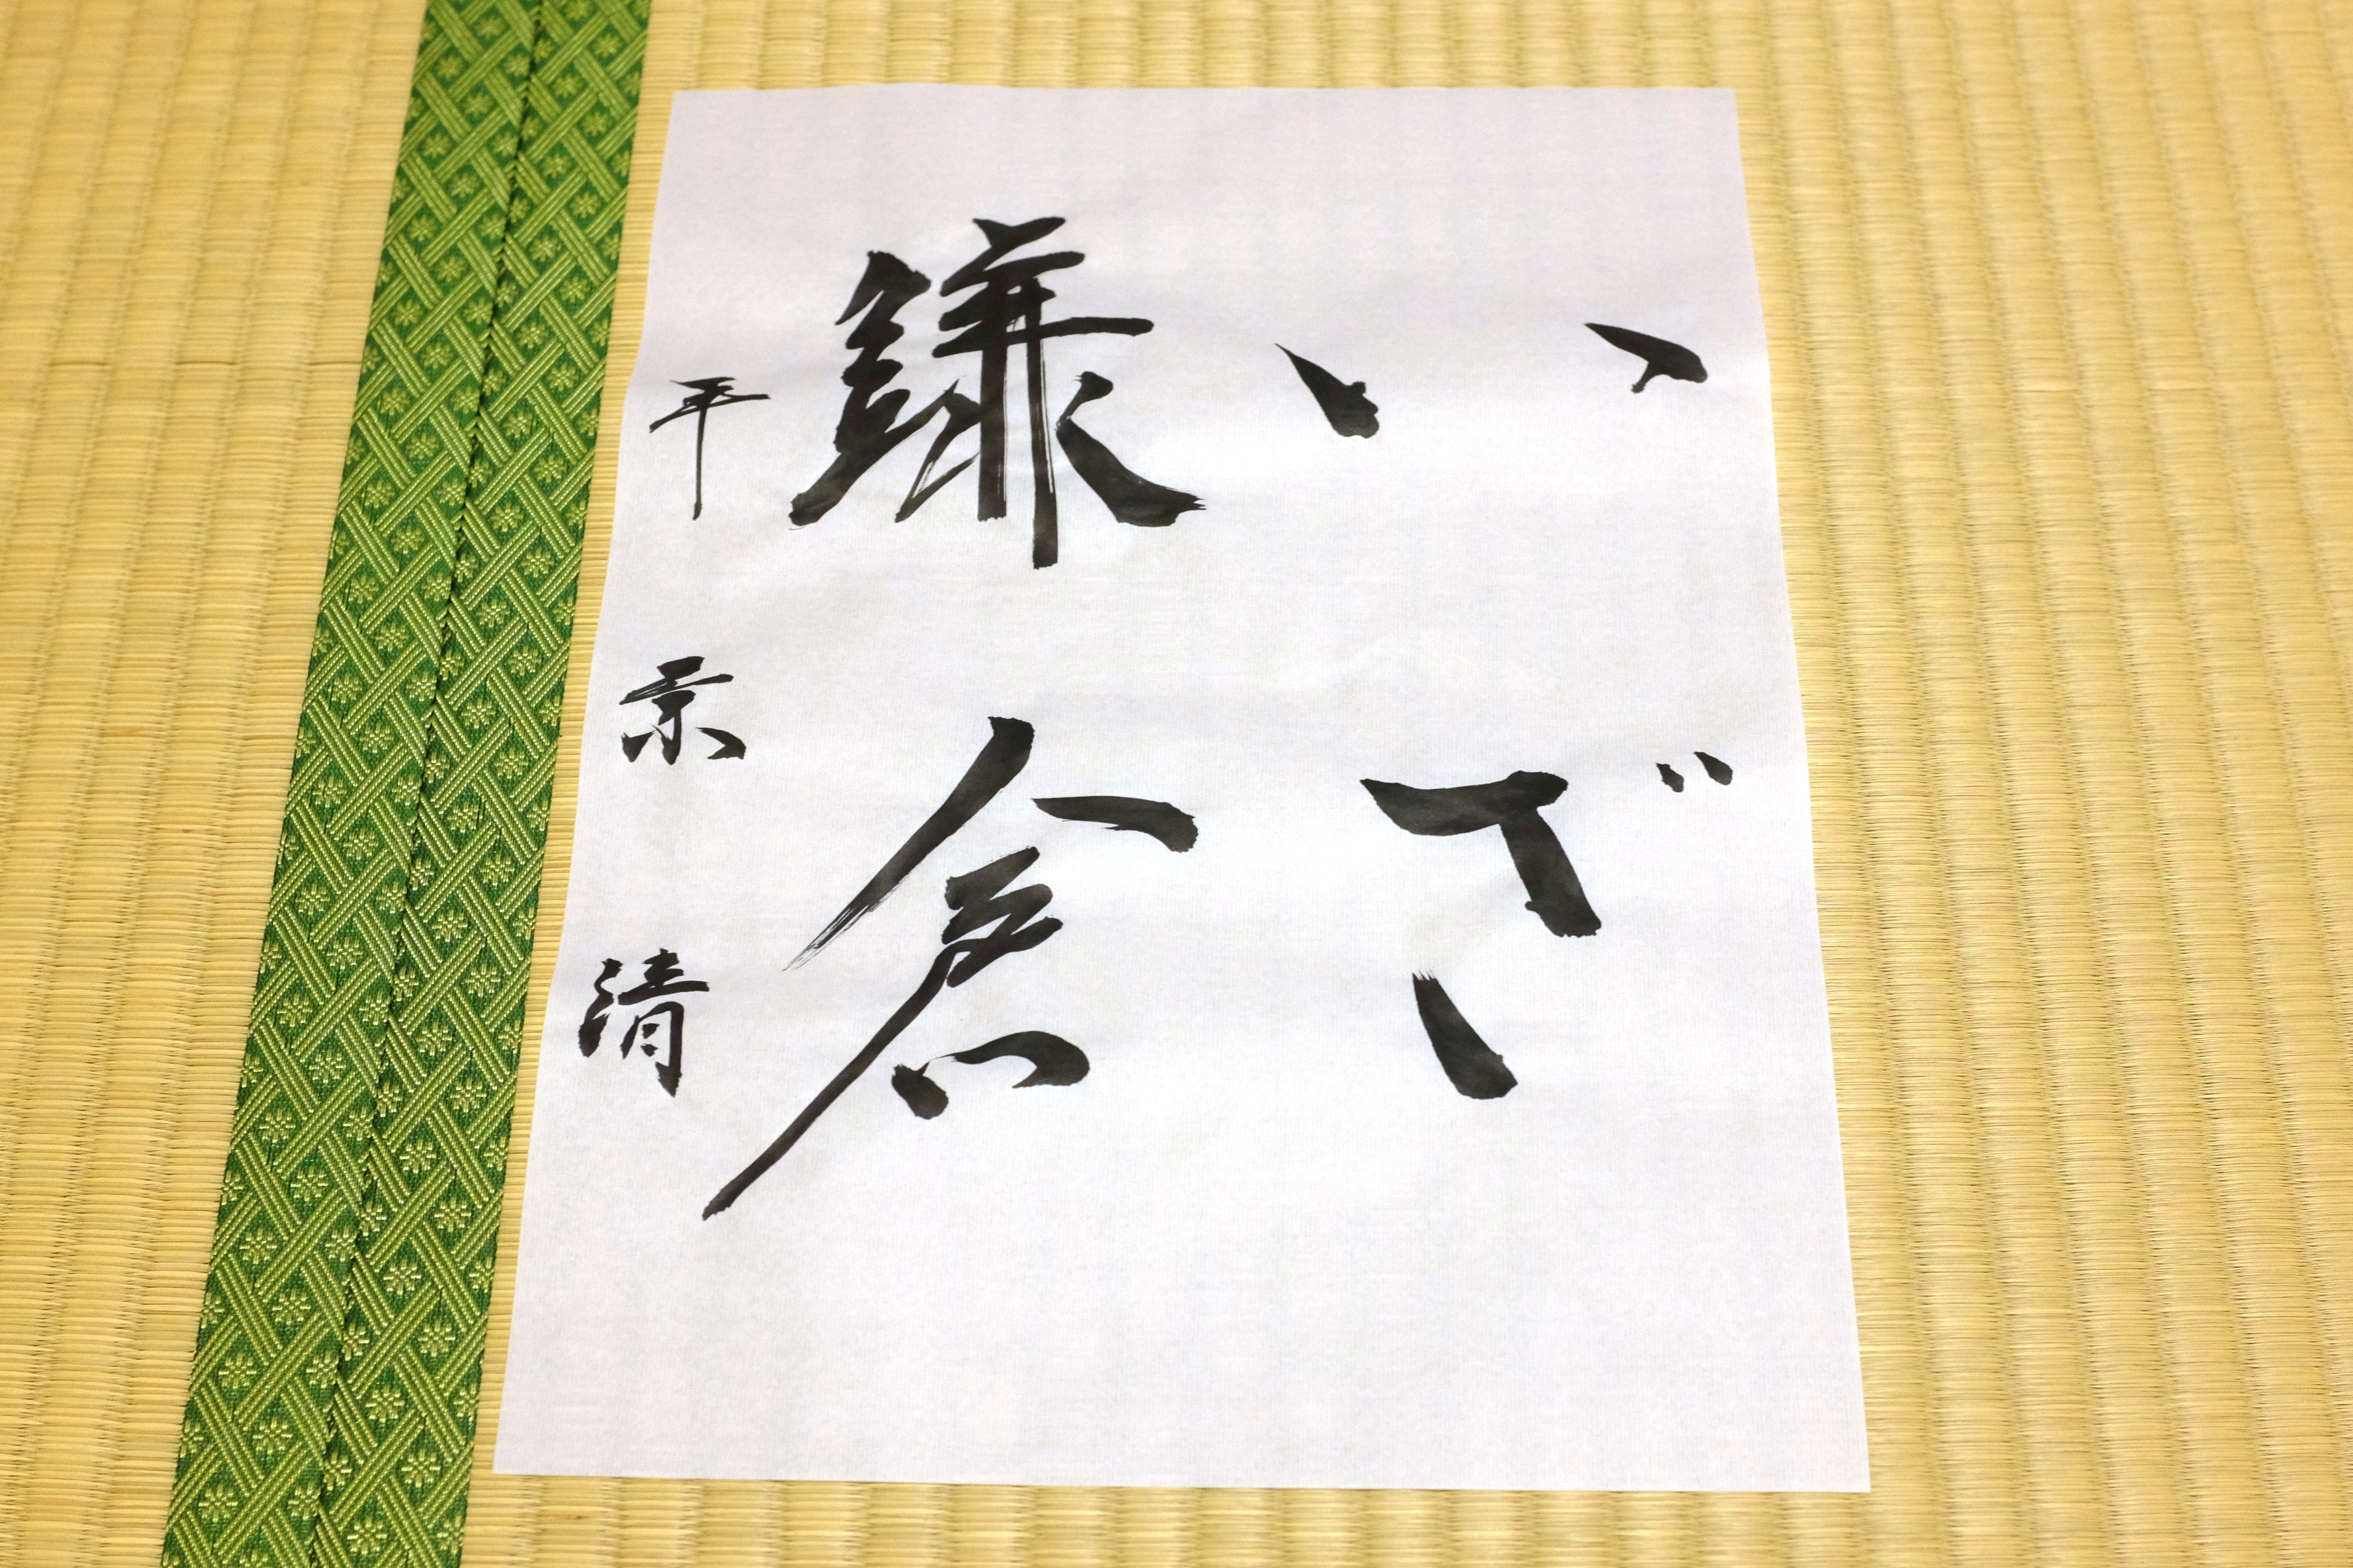 いざ
鎌倉
平景清